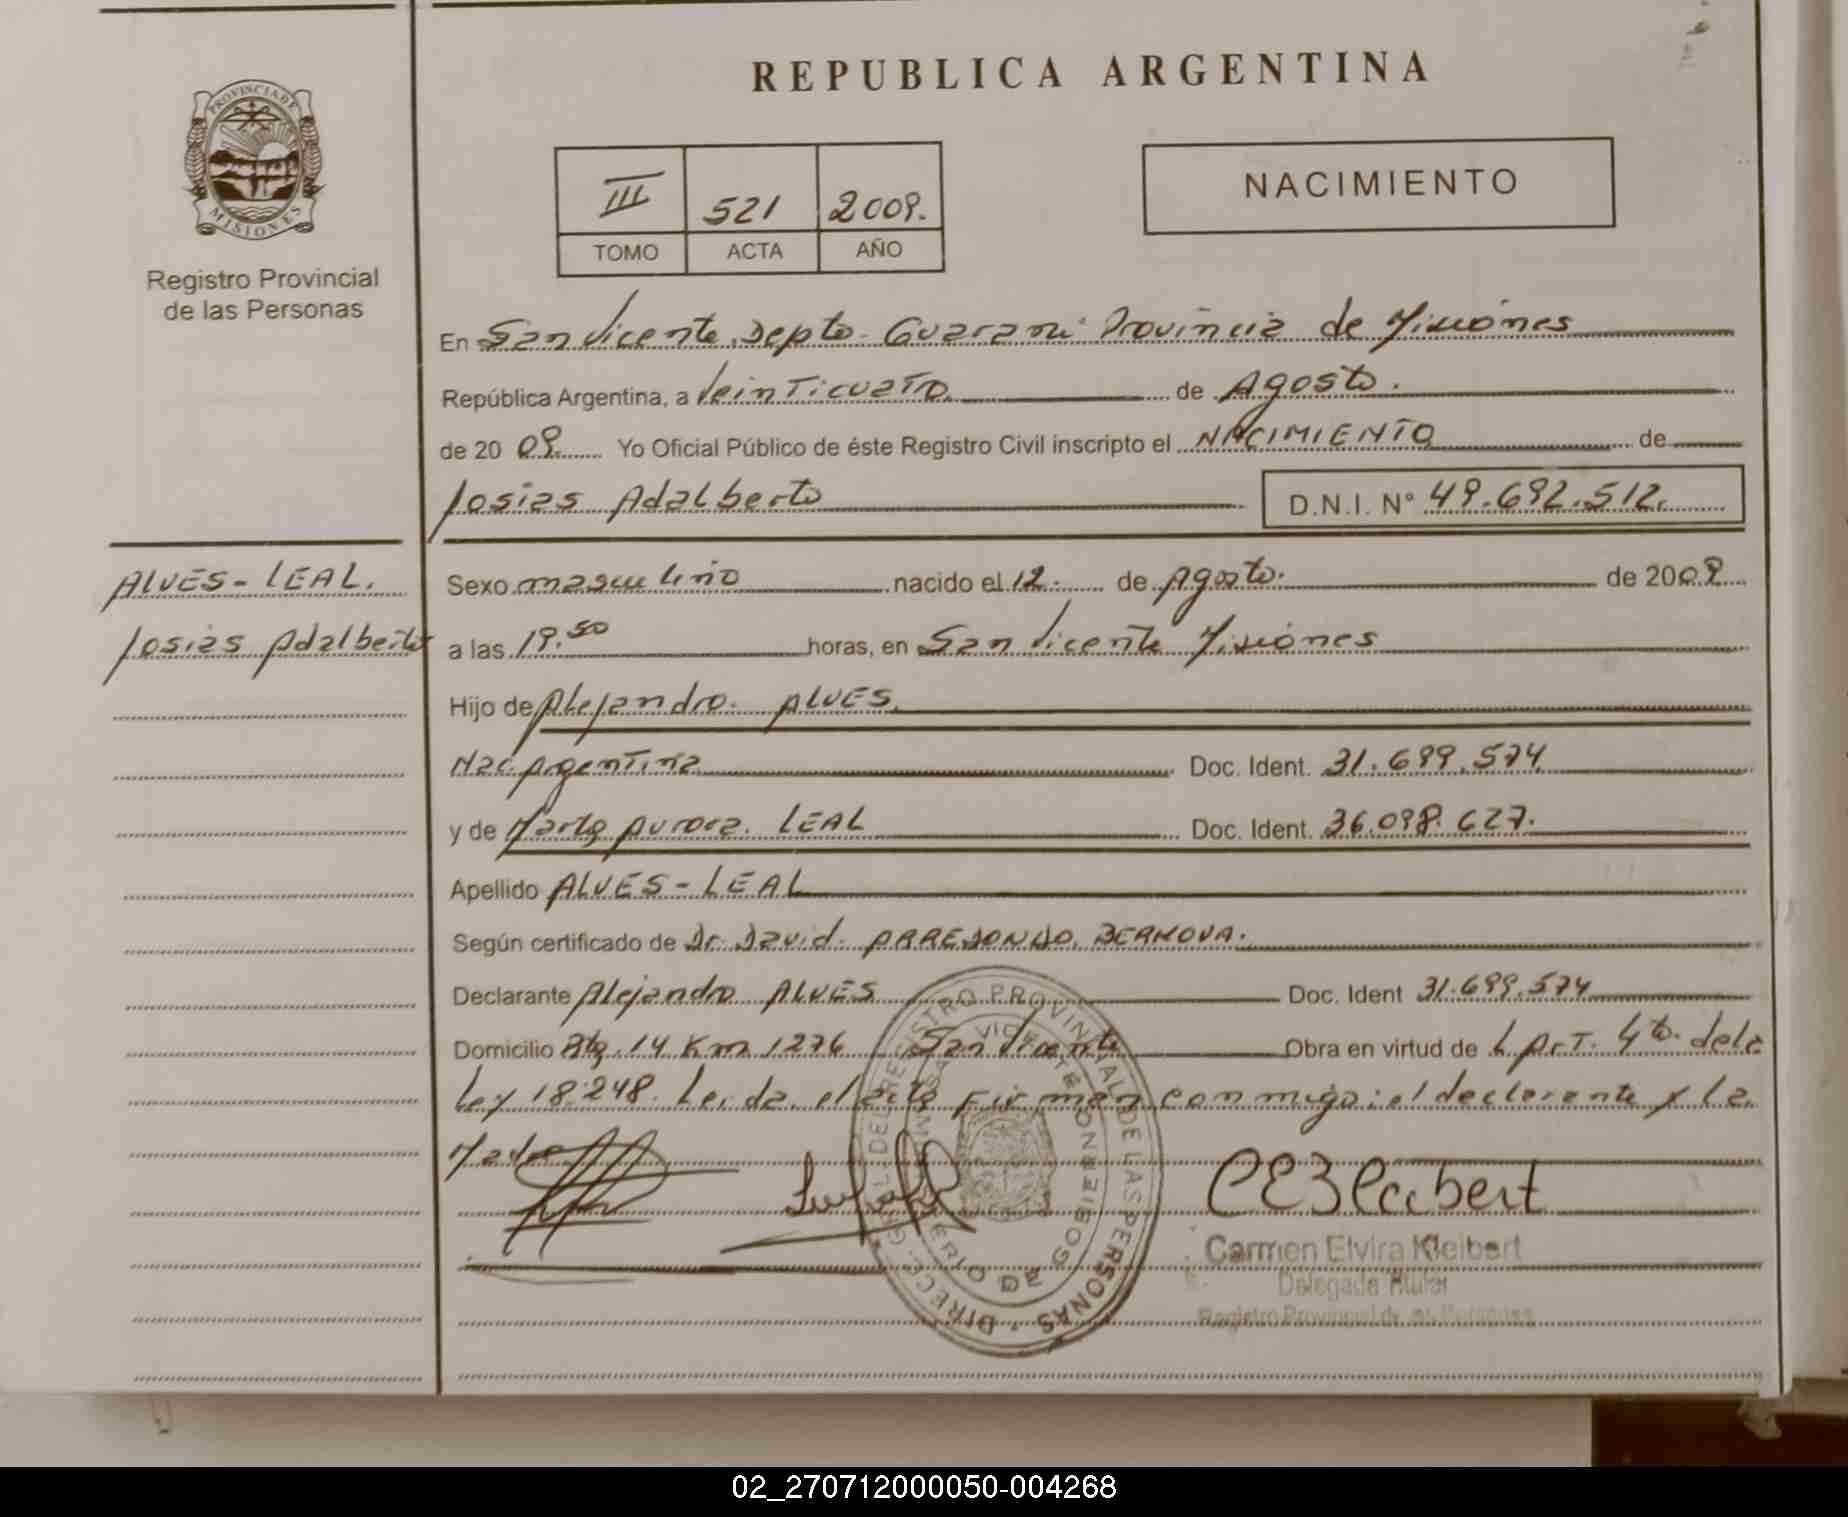 REPUBLICA ARGENTINA
PROVINCIA DE
MISIONES
Registro Provincial
de las Personas
III 521 2009.
TOMO ACTA AÑO
NACIMIENTO
En San Vicente, Depto. Guarani Provincia de Misiones
República Argentina, a Veinticuatro de Agosto.
de 20 09. Yo Oficial Público de éste Registro Civil inscripto el NACIMIENTO de
Josias Adalberto D.N.I. N° 49.692.512.
ALVES - LEAL.
Josias Adalberto
Sexo masculino nacido el 12. de Agosto. de 2009
a las 19.50 horas, en San Vicente Misiones
Hijo de Alejandro. ALVES.
Nac. Argentina Doc. Ident. 31.699.574
y de Aurora. LEAL Doc. Ident. 36.098.627.
Apellido ALVES - LEAL
Según certificado de Dr. David.
Declarante Alejandro ALVES Doc. Ident 31.699.574
Domicilio 14 Km 1276 San Vicente Obra en virtud de L Art. 4to. de la
Ley 18.248. Leida el acta Firman conmigo: el declarante y la
Madre
Carmen Elvira Kleibert
Delegada Titular
Registro Provincial de las Personas
02_270712000050-004268